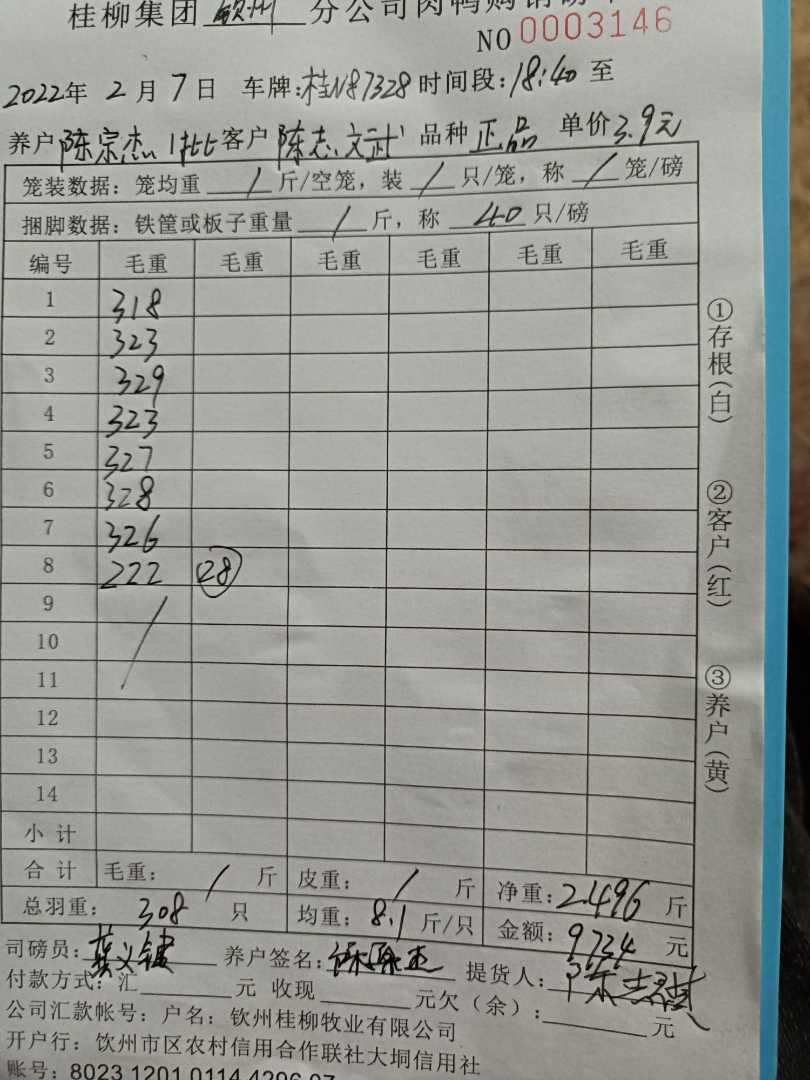 桂柳集团 钦州 分公司肉鸭购销磅单
NO 0003146
2022年 2月 7日 车牌:桂N87328 时间段:18:40 至
养户 陈宗杰 1批 客户 陈志文武 品种 正品 单价 3.9元
笼装数据: 笼均重 / 斤/空笼, 装 / 只/笼, 称 / 笼/磅
捆脚数据: 铁筐或板子重量 / 斤, 称 40 只/磅
编号 毛重 毛重 毛重 毛重 毛重 毛重
1 318
2 323
3 329
4 323
5 327
6 328
7 326
8 222 28
9
10
11
12
13
14
小 计
合 计 毛重: / 斤 皮重: / 斤 净重: 2496 斤
总羽重: 308 只 均重: 8.1 斤/只 金额: 9734 元
司磅员: 养户签名: 提货人:
付款方式: 汇 元 收现 元欠(余): 元
公司汇款帐号: 户名: 钦州桂柳牧业有限公司
开户行: 饮州市区农村信用合作联社大垌信用社
账号: 8023 1201 0114 4296 07
①存根(白)
②客户(红)
③养户(黄)